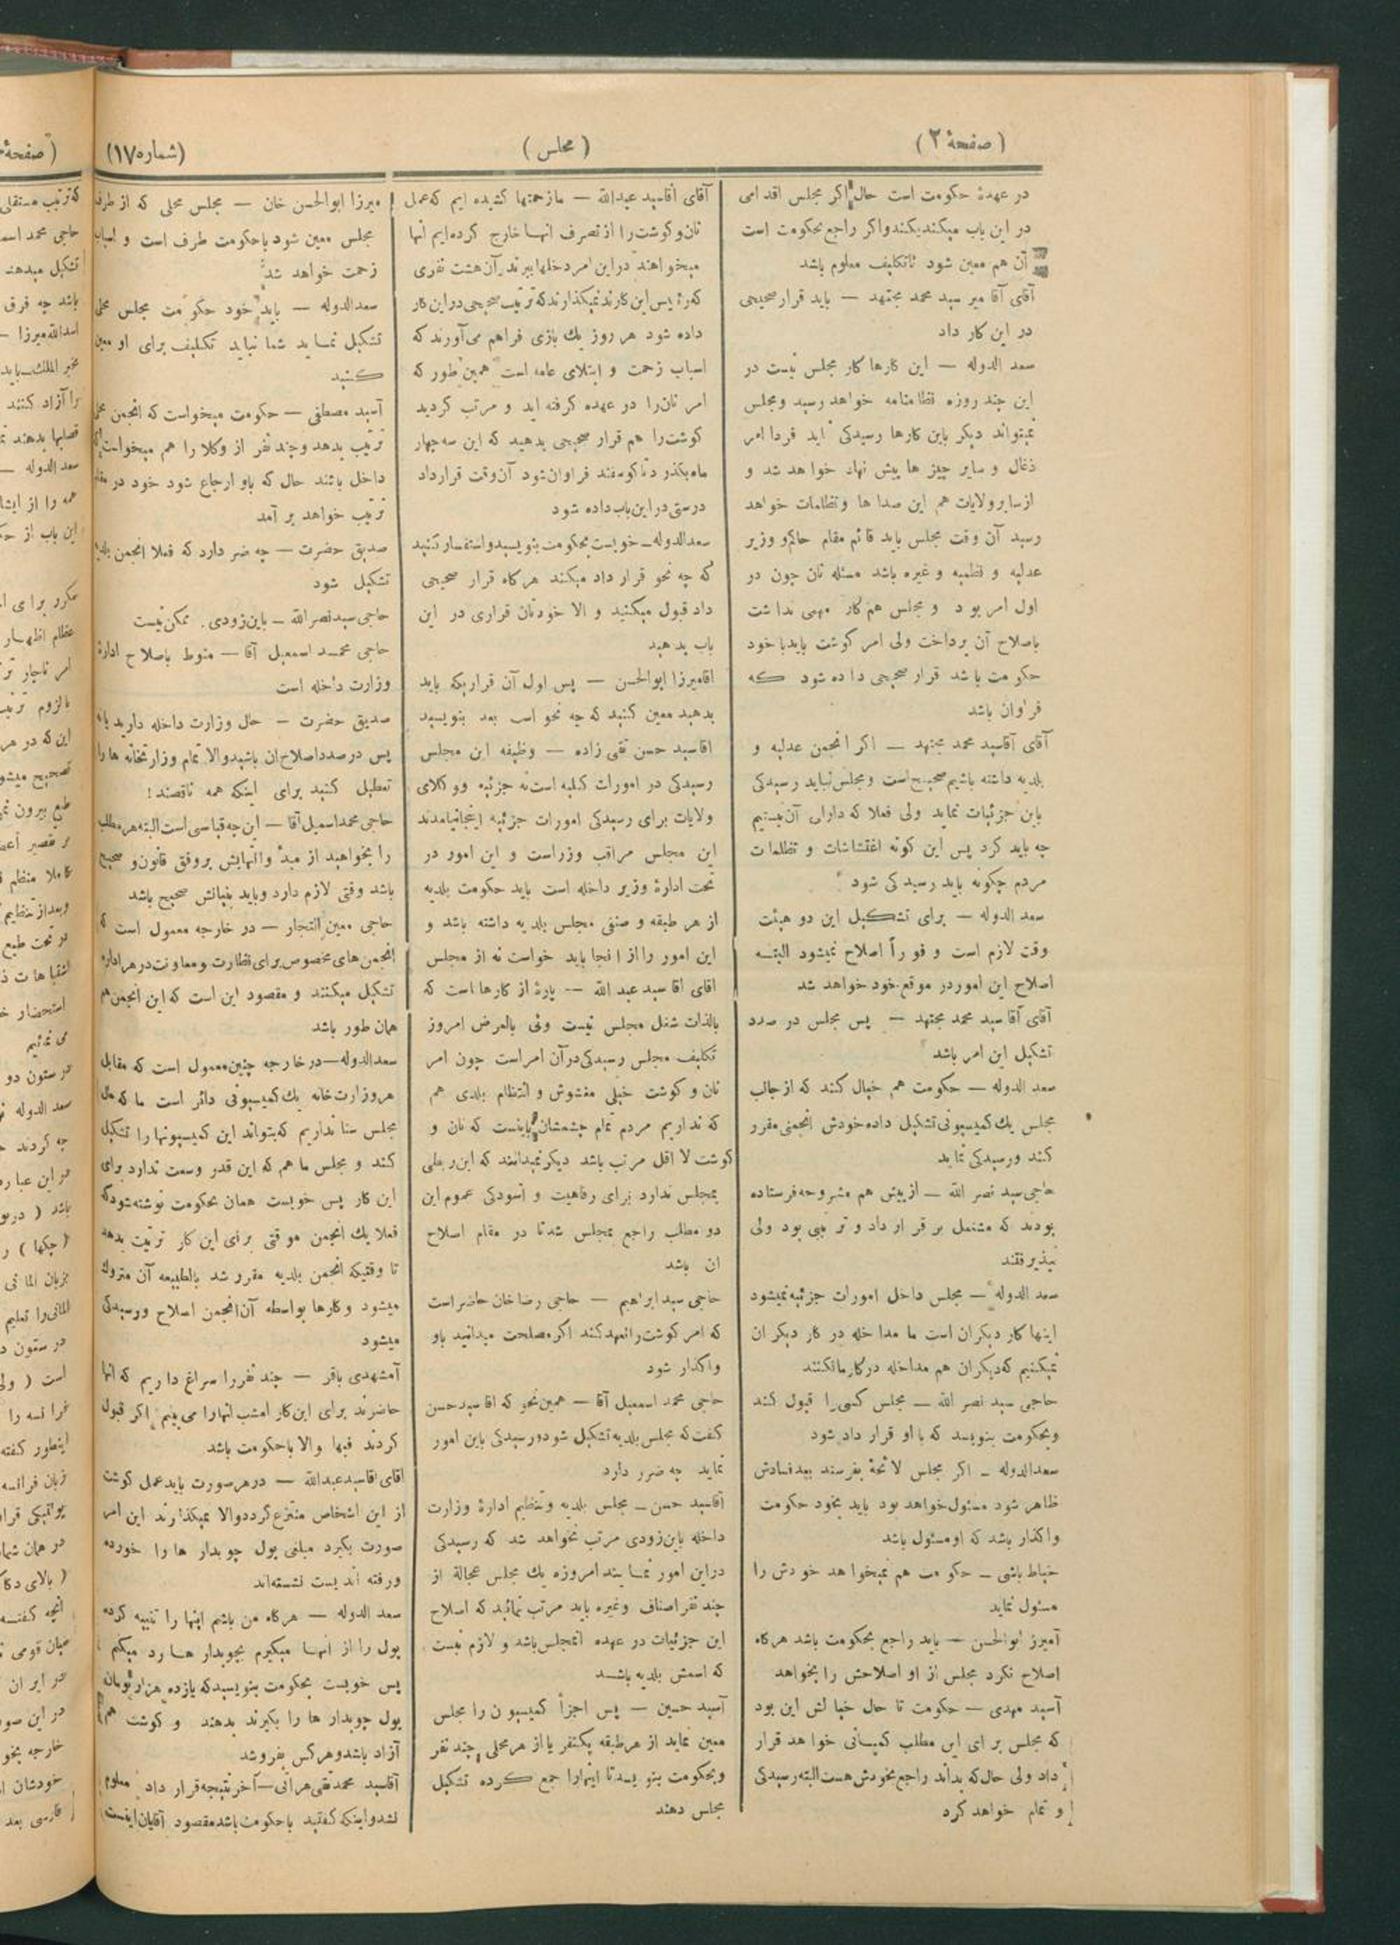 (صفحهٔ ۲)
(مجلس)
(شماره ۱۷)
در عهدهٔ حکومت است حال اکر مجلس اقدامی
در این باب میکند بکند واکر راجع بحکومت است
آن هم معین شود تاتکلیف معلوم باشد
آقای آقا میر سید محمد مجتهد — باید قرار صحیحی
در این کار داد
سعد الدوله — این کارها کار مجلس نیست در
این چند روزه نظامنامه خواهد رسید ومجلس
نمیتواند دیکر باین کارها رسیدکی اید فردا امر
ذغال و سایر چیز ها پیش نهاد خواهد شد و
ازسایر ولایات هم این صدا ها وتظلمات خواهد
رسید آن وقت مجلس باید قائم مقام حاکم و وزیر
عدلیه و نظمیه و غیره باشد مسئله نان چون در
اول امر بود و مجلس هم کار مهمی نداشت
باصلاح آن پرداخت ولی امر کوشت باید با خود
حکومت باشد قرار صحیحی داده شود که
فراوان باشد
آقای آقاسید محمد مجتهد — اکر انجمن عدلیه و
بلدیه داشته باشیم صحیح است ومجلس نباید رسیدکی
باین جزئیات نماید ولی فعلا که دارای آن نیستیم
چه باید کرد پس این کونه اغتشاشات و تظلمات
مردم چکونه باید رسیدکی شود
سعد الدوله — برای تشکیل این دو هیئت
وقت لازم است و فوراً اصلاح نمیشود البته
اصلاح این امور در موقع خود خواهد شد
آقای آقا سید محمد مجتهد — پس مجلس در صدد
تشکیل این امر باشد
سعد الدوله — حکومت هم خیال کند که ازجانب
مجلس یك کمیسیونی تشکیل داده خودش انجمنی مقرر
کند ورسیدکی نماید
حاجی سید نصر الله — ازپیش هم مشروحه فرستاده
بودند که مشتمل بر قرارداد و ترتیبی بود ولی
نپذیرفتند
سعد الدوله — مجلس داخل امورات جزئیه نمیشود
اینها کار دیکران است ما مداخله در کار دیکران
نمیکنیم که دیکران هم مداخله در کار ما نکنند
حاجی سید نصر الله — مجلس کسی را قبول کند
وبحکومت بنویسد که با او قرار داد شود
سعدالدوله — اکر مجلس لائحهٔ بفرستد بعد فسادش
ظاهر شود مسئول خواهد بود باید بخود حکومت
واکذار باشد که او مسئول باشد
خیاط باشی — حکومت هم نمیخواهد خودش را
مسئول نماید
آمیرز ابوالحسن — باید راجع بحکومت باشد هرکاه
اصلاح نکرد مجلس از او اصلاحش را بخواهد
آسید مهدی — حکومت تا حال خیالش این بود
که مجلس برای این مطلب کمپانی خواهد قرار
داد ولی حال که بداند راجع بخودش هست البته رسیدکی
و تمام خواهد کرد
آقای آقاسید عبدالله — مازحمتها کشیده ایم که عمل
نان وکوشت را از تصرف انها خارج کرده ایم انها
میخواهند در این امر دخلها ببرند آن هشت نفری
که رهٔ یس این کارند نمیکذارند که ترتیب صحیحی در این کار
داده شود هر روز یك بازی فراهم می‌آورند که
اسباب زحمت و ابتلای عامه است همین طور که
امر نان را در عهده کرفته اید و مرتب کردید
کوشت را هم قرار صحیحی بدهید که این سه چهار
ماه بکذرد تا کوسفند فراوان شود آن وقت قرارداد
درستی در این باب داده شود
سعدالدوله — خوبست بحکومت بنویسید و استفسار کنید
که چه نحو قرار داد میکند هرکاه قرار صحیحی
داد قبول میکنید و الا خودتان قراری در این
باب بدهید
اقامیرزا ابوالحسن — پس اول آن قراریکه باید
بدهید معین کنید که چه نحو است بعد بنویسید
اقاسید حسن تقی زاده — وظیفه این مجلس
رسیدکی در امورات کلیه است نه جزئیه ووکلای
ولایات برای رسیدکی امورات جزئیه اینجا نیامدند
این مجلس مراقب وزراست و این امور در
تحت ادارهٔ وزیر داخله است باید حکومت بلدیه
از هر طبقه و صنفی مجلس بلدیه داشته باشد و
این امور را از انجا باید خواست نه از مجلس
اقای اقا سید عبد الله — پارهٔ از کارها است که
بالذات شغل مجلس نیست ولی بالعرض امروز
تکلیف مجلس رسیدکی در آن امر است چون امر
نان و کوشت خیلی مغشوش و انتظام بلدی هم
که نداریم مردم تمام چشمشان باینست که نان و
کوشت لا اقل مرتب باشد دیکر نمیدانند که این ربطی
بمجلس ندارد برای رفاهیت و آسودکی عموم این
دو مطلب راجع بمجلس شد تا در مقام اصلاح
ان باشد
حاجی سید ابراهیم — حاجی رضا خان حاضر است
که امر کوشت را تعهد کند اکر مصلحت میدانید باو
واکذار شود
حاجی محمد اسمعیل آقا — همین نحو که اقا سید حسن
کفت که مجلس بلدیه تشکیل شود و رسیدکی باین امور
نماید چه ضرر دارد
آقاسید حسن — مجلس بلدیه وتنظیم ادارهٔ وزارت
داخله باین زودی مرتب نخواهد شد که رسیدکی
دراین امور نمایند امروزه یك مجلس عجالة از
چند نفر اصناف وغیره باید مرتب نمائید که اصلاح
این جزئیات در عهده انمجلس باشد و لازم نیست
که اسمش بلدیه باشد
آسید حسین — پس اجزأ کمیسیون را مجلس
معین نماید از هر طبقه یکنفر یا از هر محلی چند نفر
وبحکومت بنویسد تا اینها را جمع کرده تشکیل
مجلس دهند
میرزا ابوالحسن خان — مجلس محلی که از طرف
مجلس معین شود با حکومت طرف است و اسباب
زحمت خواهد شد
سعدالدوله — باید خود حکومت مجلس محلی
تشکیل نماید شما نباید تکلیف برای او معین
کنید
آسید مصطفی — حکومت میخواست که انجمن محلی
ترتیب بدهد وچند نفر از وکلا را هم میخواست
داخل باشند حال که باو ارجاع شود خود در مقام
ترتیب خواهد بر آمد
صدیق حضرت — چه ضرر دارد که فعلا انجمن بلدیه
تشکیل شود
حاجی سید نصر الله — باین زودی ممکن نیست
حاجی محمد اسمعیل آقا — منوط باصلاح ادارهٔ
وزارت داخله است
صدیق حضرت — حال وزارت داخله دارید یا نه
پس درصدد اصلاح ان باشید والا تمام وزارتخانه ها را
تعطیل کنید برای اینکه همه ناقصند!
حاجی محمد اسمعیل آقا — این چه قیاسی است البته هر مطلب
را بخواهید از مبدأ وانتهایش بروفق قانون و صحیح
باشد وقتی لازم دارد وباید بنیانش صحیح باشد
حاجی معین التجار — در خارجه معمول است که
انجمن های مخصوص برای نظارت و معاونت در هر اداره
تشکیل میکنند و مقصود این است که این انجمن هم
همان طور باشد
سعدالدوله — در خارجه چنین معمول است که مقابل
هر وزارت خانه یك کمیسیونی دائر است ما که حال
مجلس سنا نداریم که بتواند این کمیسیونها را تشکیل
کند و مجلس ما هم که این قدر وسعت ندارد برای
این کار پس خوبست همان بحکومت نوشته شود که
فعلا یك انجمن موقتی برای این کار ترتیب بدهد
تا وقتیکه انجمن بلدیه مقرر شد بالطبیعه آن متروك
میشود وکارها بواسطه آن انجمن اصلاح ورسیدکی
میشود
آمشهدی باقر — چند نفر را سراغ داریم که انها
حاضرند برای این کار امشب انها را می بینم اکر قبول
کردند فبها والا با حکومت باشد
اقای اقاسید عبدالله — در هر صورت باید عمل کوشت
از این اشخاص منتزع کردد والا نمیکذارند این امر
صورت بکیرد مبلغی پول چوبدار ها را خورده
ورفته اند بست نشسته‌اند
سعد الدوله — هرکاه من باشم اینها را تنبیه کرده
پول را از انها میکیرم بچوبدار ها رد میکنم
پس خوبست بحکومت بنویسید که یازده هزار تومان
پول چوبدار ها را بکیرند بدهند و کوشت هم
آزاد باشد وهر کس بفروشد
آقاسید محمد تقی هراتی — آخر نتیجه قرار داد معلوم
نشد و اینکه کفتید با حکومت باشد مقصود آقایان اینست